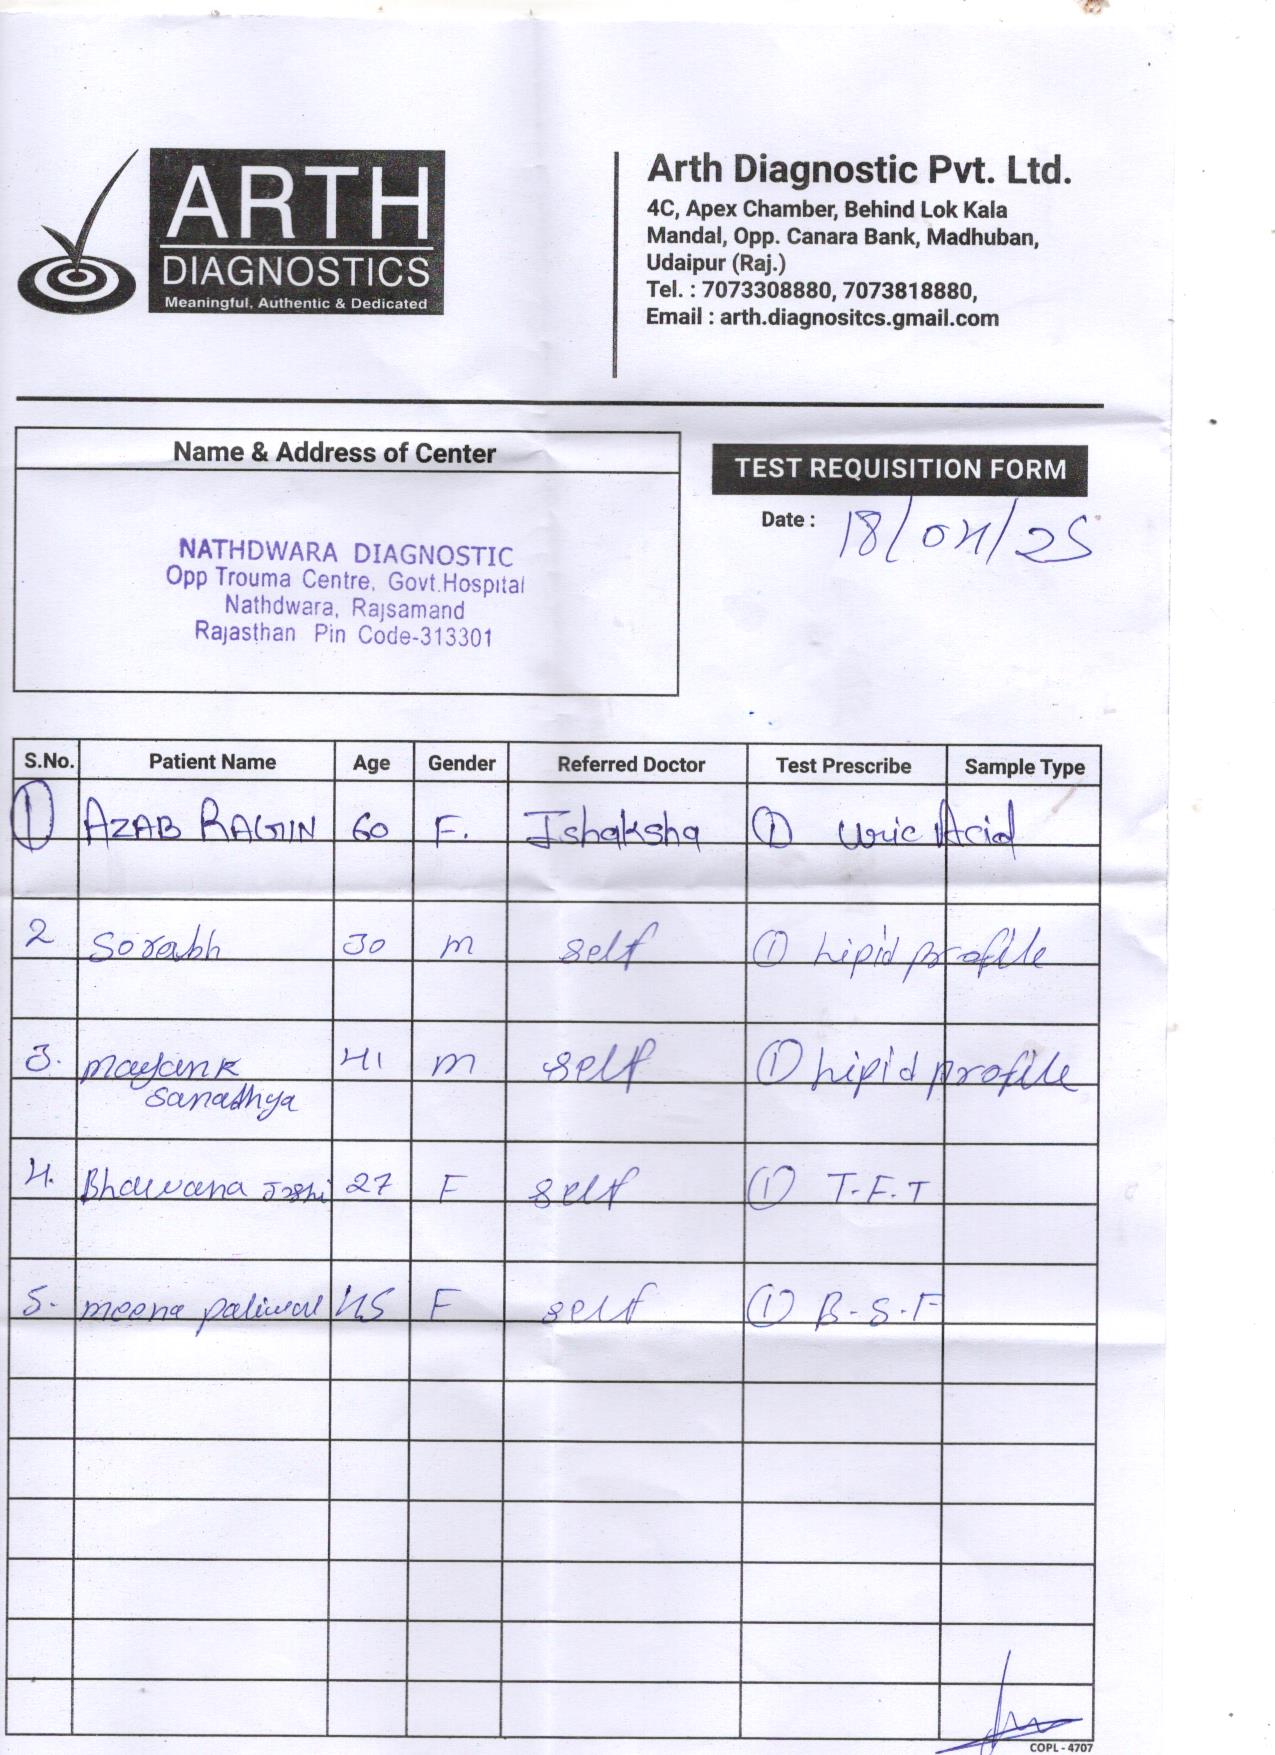 ARTH
DIAGNOSTICS
Meaningful, Authentic & Dedicated
Arth Diagnostic Pvt. Ltd.
4C, Apex Chamber, Behind Lok Kala
Mandal, Opp. Canara Bank, Madhuban,
Udaipur (Raj.)
Tel. : 7073308880, 7073818880,
Email : arth.diagnositcs.gmail.com
Name & Address of Center
NATHDWARA DIAGNOSTIC
Opp Trouma Centre, Govt.Hospital
Nathdwara, Rajsamand
Rajasthan Pin Code-313301
TEST REQUISITION FORM
Date : 18/04/25
S.No. Patient Name Age Gender Referred Doctor Test Prescribe Sample Type
1 AZAB 60 F. Ishaksha 1 Uric Acid
2 Sorabh 30 m self 1 Lipid profile
3. mayank 41 m self 1 Lipid profile
Sanadhya
4. Bhawana Joshi 27 F self 1 T.F.T
5. meena paliwal 45 F self 1 B-S-F
COPL - 4707